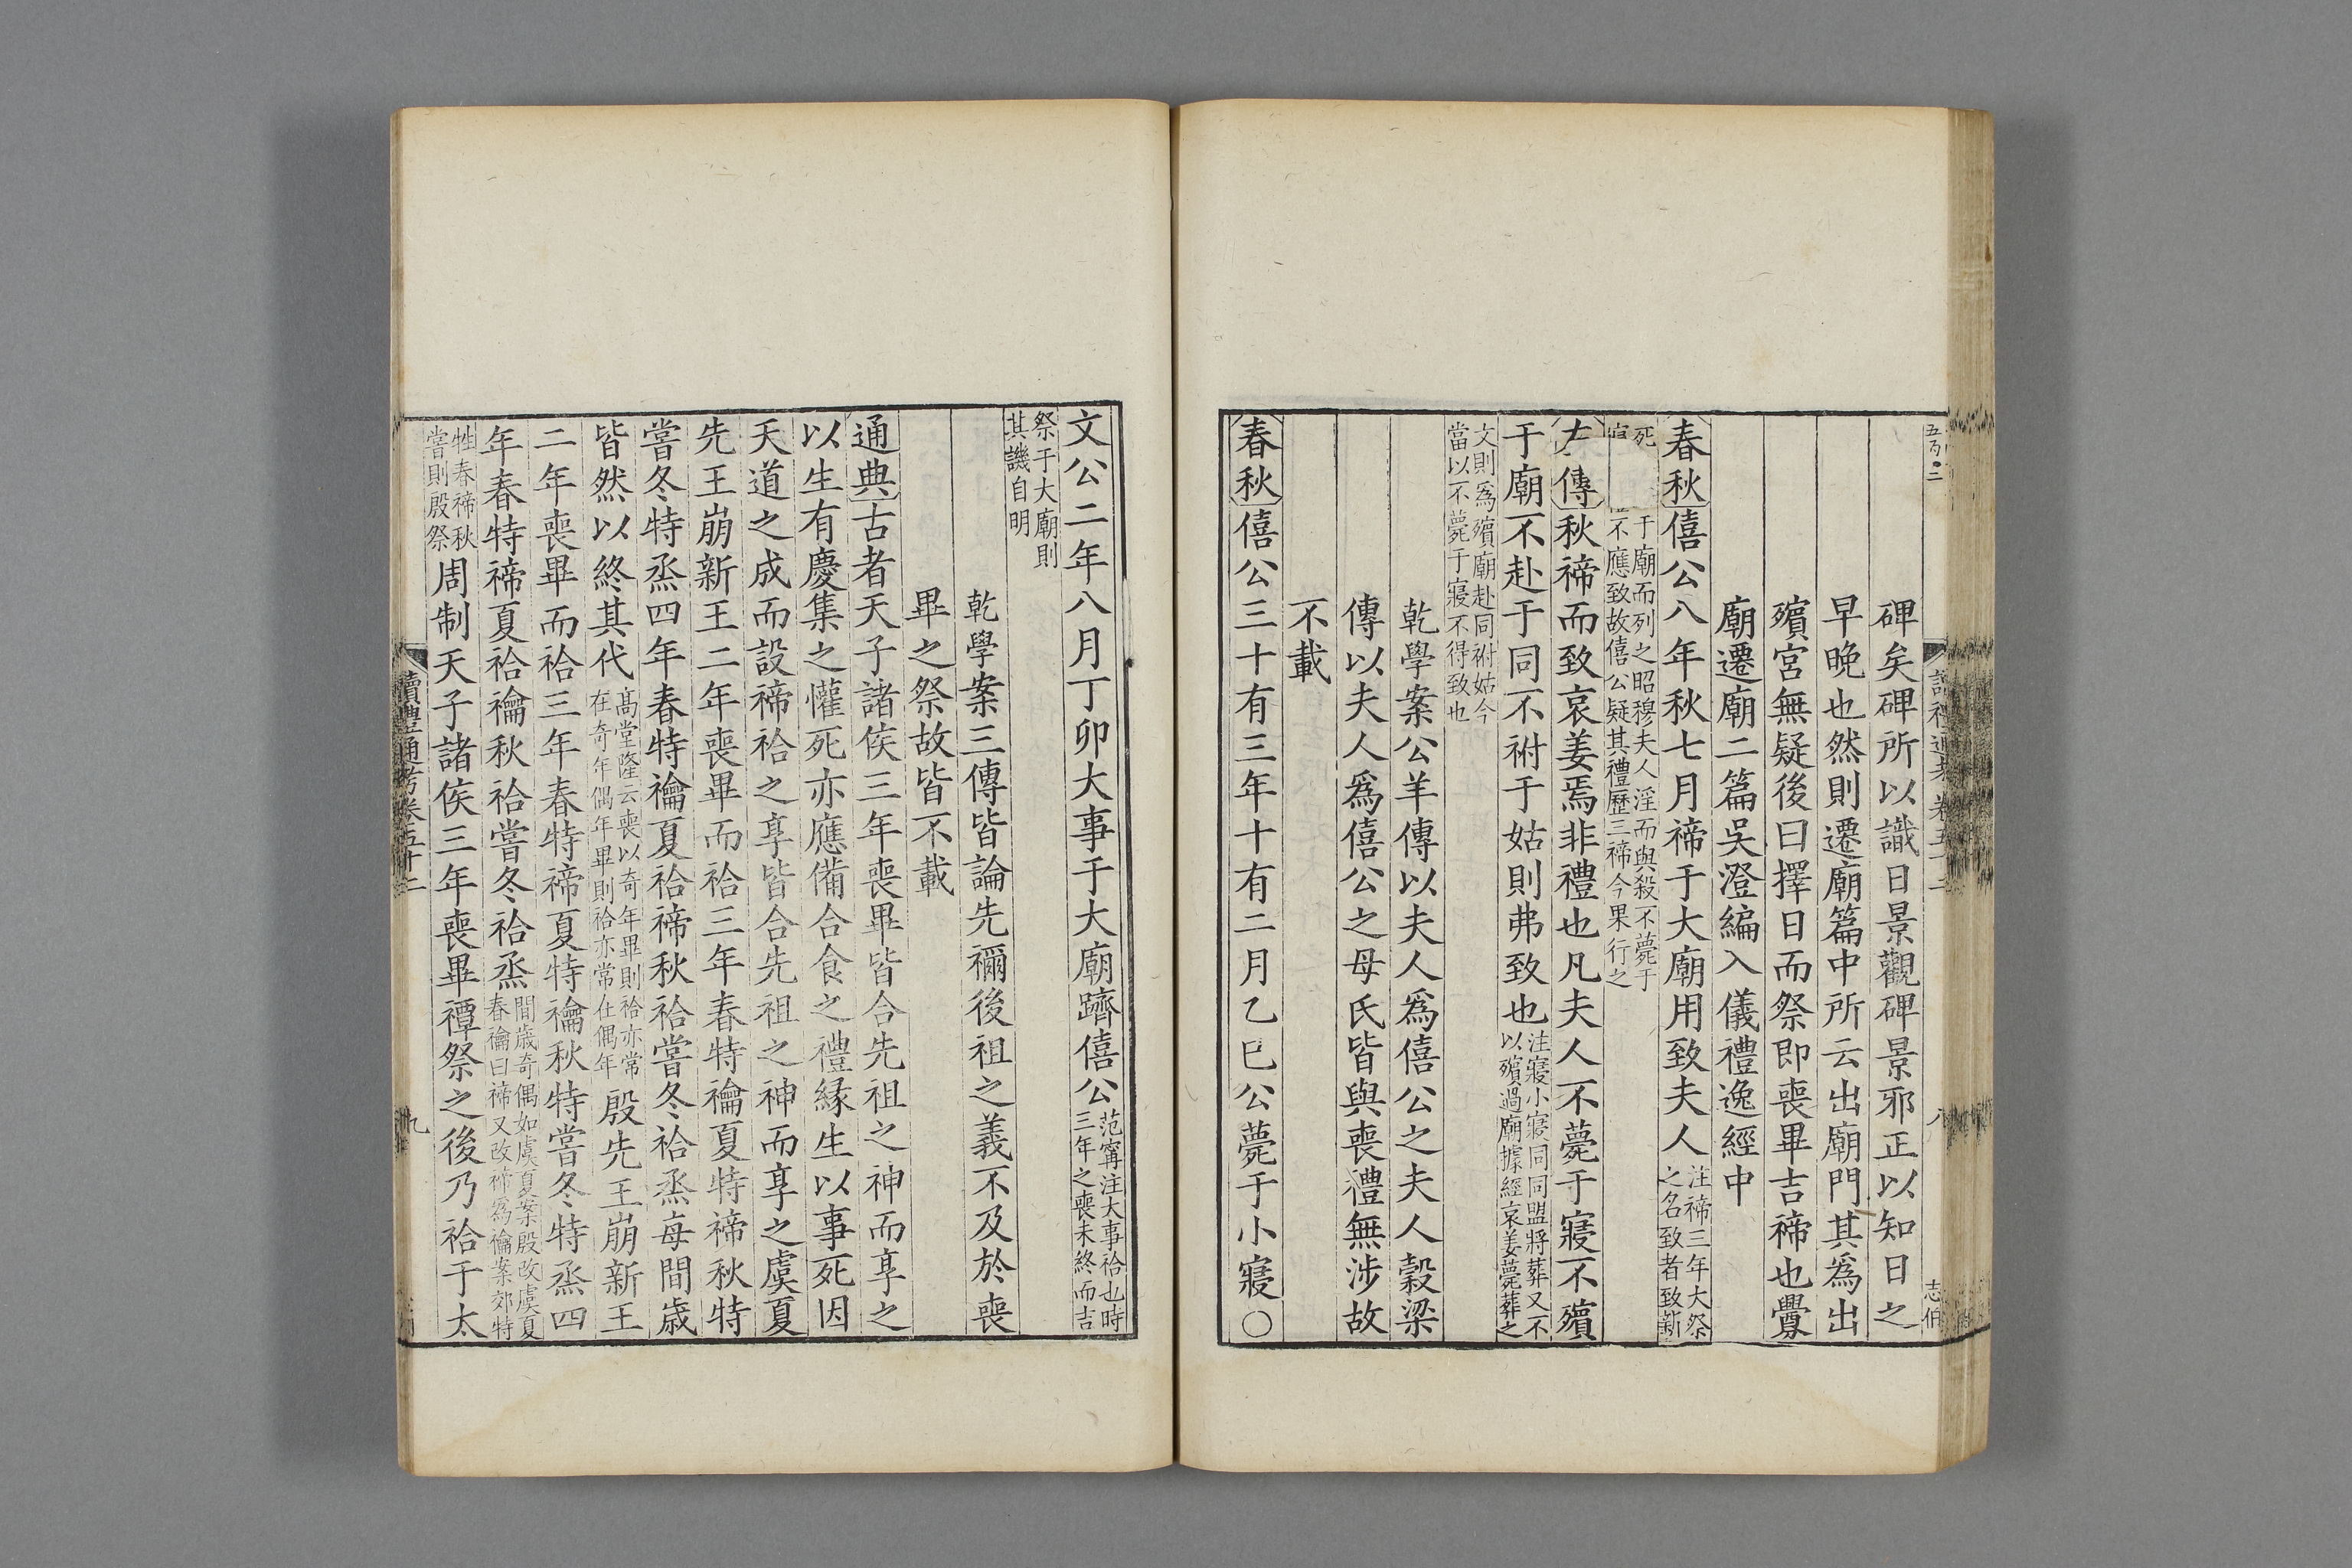 碑矣碑所以識日景觀碑景邪正以知日之
早晚也然則遷廟篇中所云出廟門其為出
殯宮無疑後曰擇日而祭即喪畢吉禘也釁
廟遷廟二篇吳澄編入儀禮逸經中
春秋僖公八年秋七月禘于大廟用致夫人注禘三年大祭
之名致者致新
死于廟而列之昭穆夫人淫而與殺不薨于
寢不應致故僖公疑其禮歷三禘今果行之
左傳秋禘而致哀姜焉非禮也凡夫人不薨于寢不殯
于廟不赴于同不祔于姑則弗致也注寢小寢同同盟將葬又不
以殯過廟據經哀姜薨葬之
文則為殯廟赴同祔姑今
當以不薨于寢不得致也
乾學案公羊傳以夫人為僖公之夫人穀梁
傳以夫人為僖公之母氏皆與喪禮無涉故
不載
春秋僖公三十有三年十有二月乙巳公薨于小寢○
讀禮通考 卷五十二
八
文公二年八月丁卯大事于大廟躋僖公范甯注大事祫也時
三年之喪未終而吉
祭于大廟則
其譏自明
乾學案三傳皆論先禰後祖之義不及於喪
畢之祭故皆不載
通典古者天子諸侯三年喪畢皆合先祖之神而享之
以生有慶集之懽死亦應備合食之禮緣生以事死因
天道之成而設禘祫之享皆合先祖之神而享之虞夏
先王崩新王二年喪畢而祫三年春特禴夏特禘秋特
嘗冬特烝四年春特禴夏祫禘秋祫嘗冬祫烝每間歲
皆然以終其代高堂隆云喪以奇年畢則祫亦常
在奇年偶年畢則祫亦常在偶年
殷先王崩新王
二年喪畢而祫三年春特禘夏特禴秋特嘗冬特烝四
年春特禘夏祫禴秋祫嘗冬祫烝間歲奇偶如虞夏案殷改虞夏
春禴曰禘又改禘為禴案郊特
牲春禘秋
嘗則殷祭
周制天子諸侯三年喪畢禫祭之後乃祫于太
讀禮通考卷五十二
九